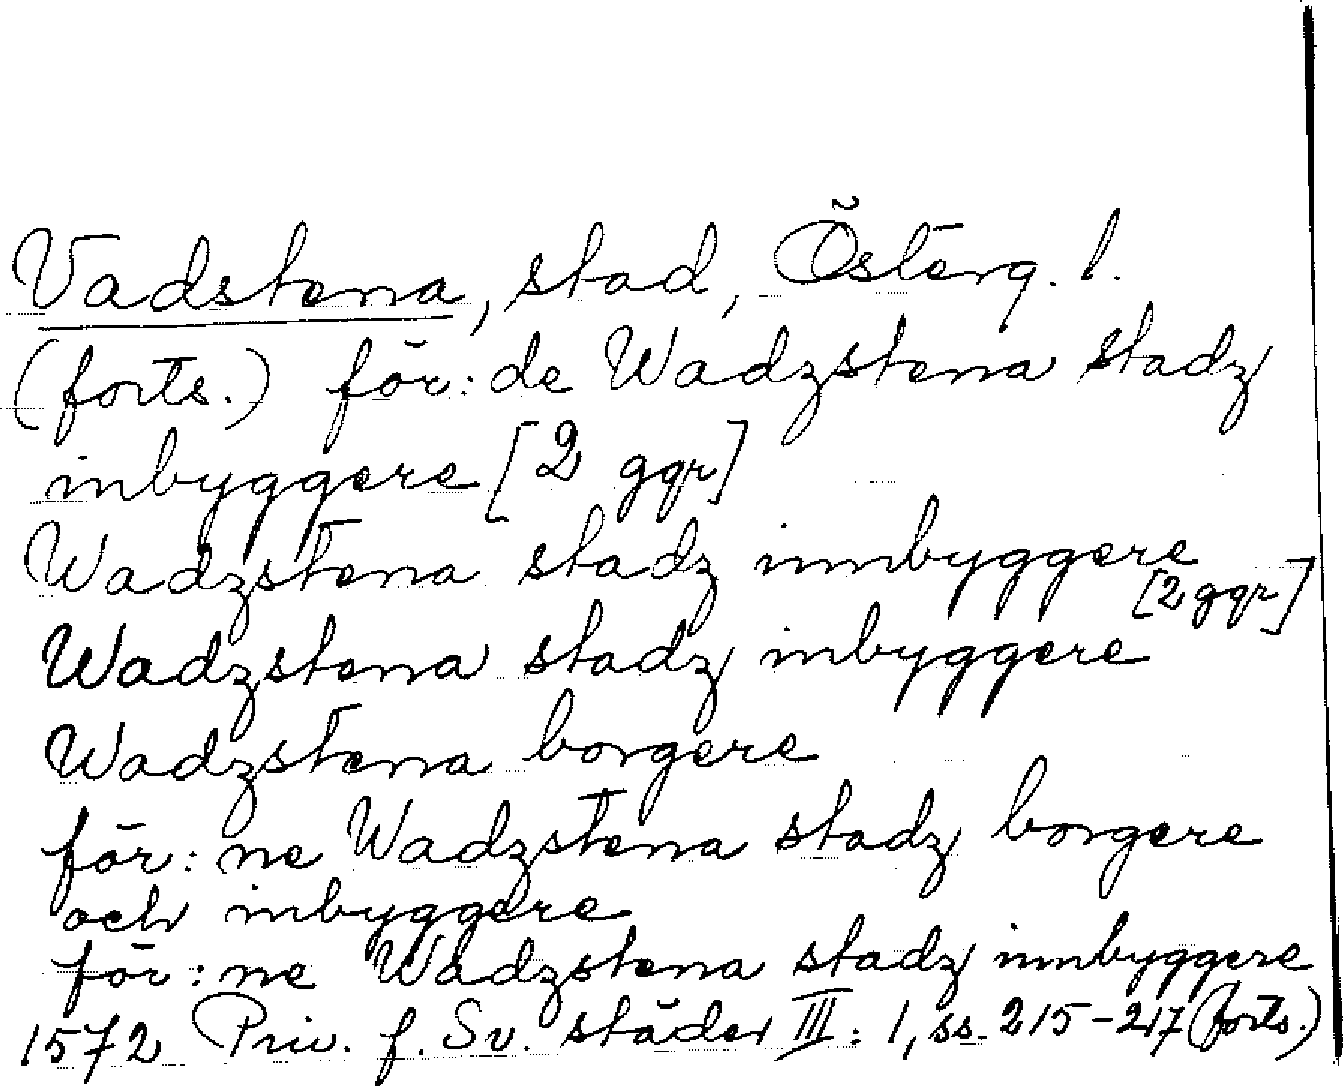 Vadstena, stad, Österg. l.
(forts.) för: de Wadzstena stadz
inbyggere [2 ggr]
Wadzstena stadz innbyggere
[2 ggr]
Wadzstena stadz inbyggere
Wadzstena borgere
för: ne Wadzstena stadz borgere
och inbyggere
för: ne Wadzstena stadz innbyggere
1572 Priv. f. Sv. städer III: 1, ss. 215-217 (forts.)